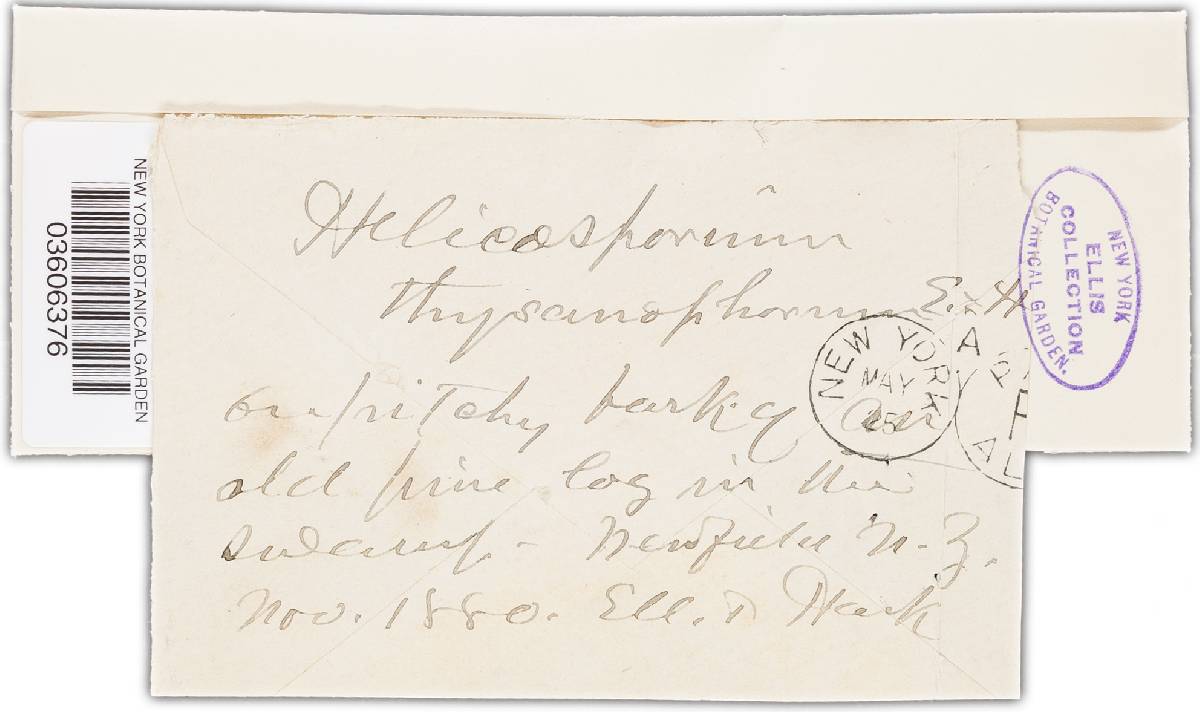 Helicosporium
thysanophorum E. & H
on pitchy bark of an
old pine log in the
swamp - Newfield N.J.
Nov. 1880. Ell. & Hark
NEW YORK
MAY
25
A
AL
NEW YORK BOTANICAL GARDEN
03606376
NEW YORK
ELLIS
COLLECTION
BOTANICAL GARDEN.